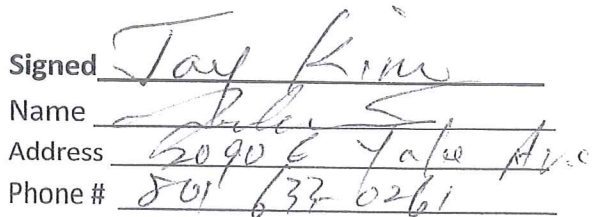 Signed Jay Kim
Name
Address 2090 E Yale Ave
Phone # 801 633-0261